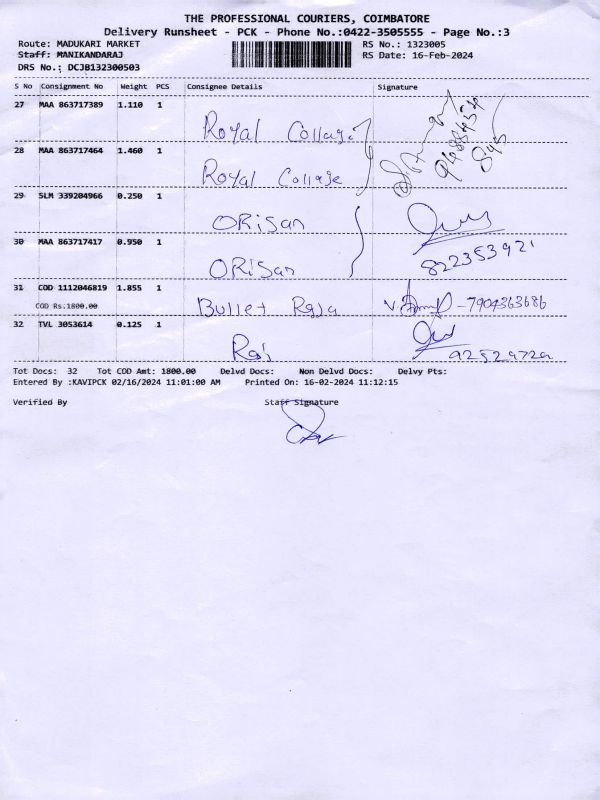 THE PROFESSIONAL COURIERS, COIMBATORE
Delivery Runsheet - PCK - Phone No.:0422-3505555 - Page No.:3
Route: MADUKARI MARKET RS No.: 1323005
Staff: MANIKANDARAJ RS Date: 16-Feb-2024
DRS No.; DCJB132300503
S No Consignment No Weight PCS Consignee Details Signature
27 MAA 863717389 1.110 1
Royal Collage
28 MAA 863717464 1.460 1
Royal Collage
29 SLM 339204966 0.250 1
ORisan
30 MAA 863717417 0.950 1
ORisan
31 COD 1112046819 1.855 1
COD Rs:1800.00 Bullet Raja 7904363686
32 TVL 3053614 0.125 1
Raj
Tot Docs: 32 Tot COD Amt: 1800.00 Delvd Docs: Non Delvd Docs: Delvy Pts:
Entered By :KAVIPCK 02/16/2024 11:01:00 AM Printed On: 16-02-2024 11:12:15
Verified By Staff Signature